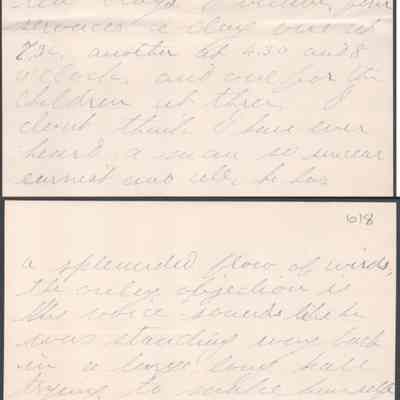 services a day one at
7.30, another at 4.30 and 8
o'clock, and one for the
children at three. I
dont think I have ever
heard a man so sincear
earnest and he has
618
a splended flow of words,
the only objection is
his voice sounds like he
was standing way back
in a large long hall
trying to make himself